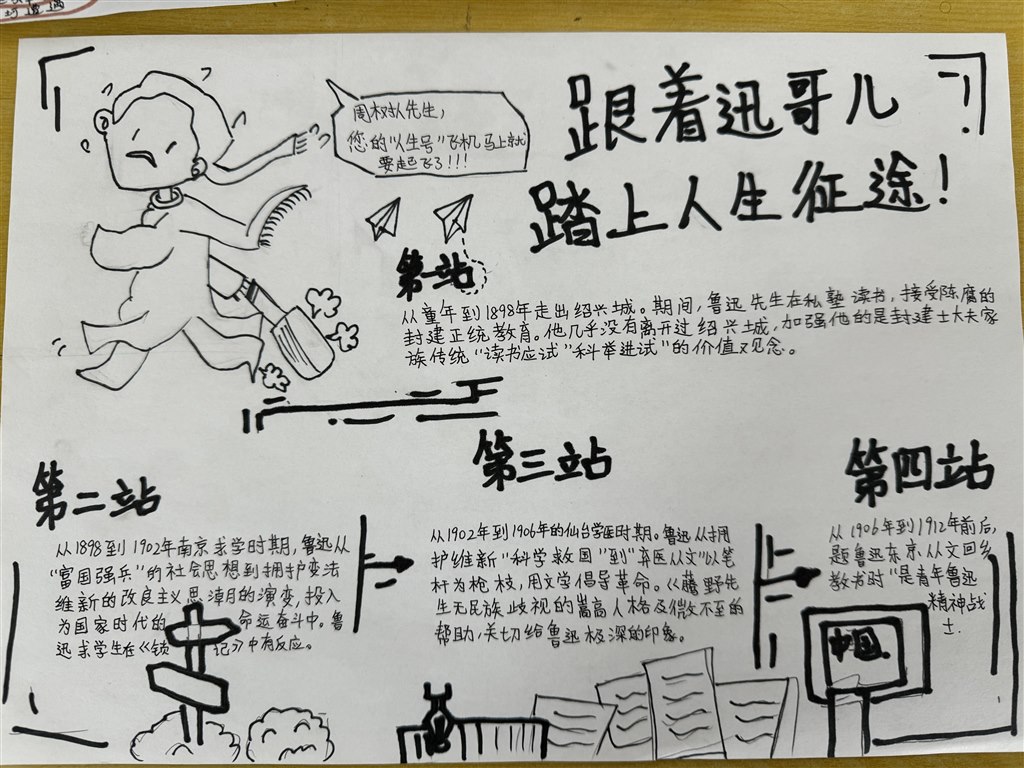 跟着迅哥儿
踏上人生征途!
周树人先生,
您的"人生号"飞机马上就
要起飞了!!!
第一站
从童年到1898年走出绍兴城。期间,鲁迅先生在私塾读书,接受陈腐的
封建正统教育。他几乎没有离开过绍兴城,加强他的是封建士大夫家
族传统"读书应试""科举进试"的价值观念。
第二站
从1898到1902年南京求学时期,鲁迅从
"富国强兵"的社会思想到拥护变法
维新的改良主义思潮的演变,投入
为国家时代的 命运奋斗中。鲁
迅求学生在《锁 记》中有反应。
第三站
从1902年到1906年的仙台学医时期。鲁迅从拥
护维新"科学救国"到"弃医从文"以笔
杆为枪枝,用文学倡导革命。《藤野先
生无民族歧视的嵩高人格及微不至的
帮助,关切给鲁迅极深的印象。
第四站
从1906年到1912年前后,
题鲁迅东京从文回乡
教书时"是青年鲁迅
精神战
士.
中国.